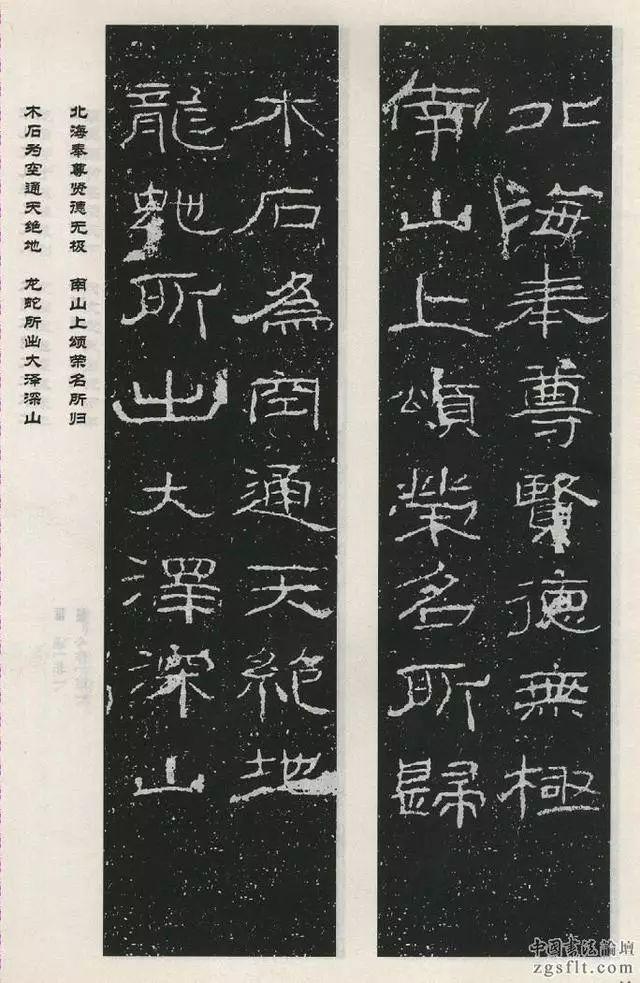 北海奉尊賢德無極
南山上頌榮名所歸
木石為空通天絶地
龍虵所出大澤深山
北海奉尊贤德无极　南山上颂荣名所归
木石为空通天绝地　龙蛇所出大泽深山
中国书法論壇
zgsflt.com